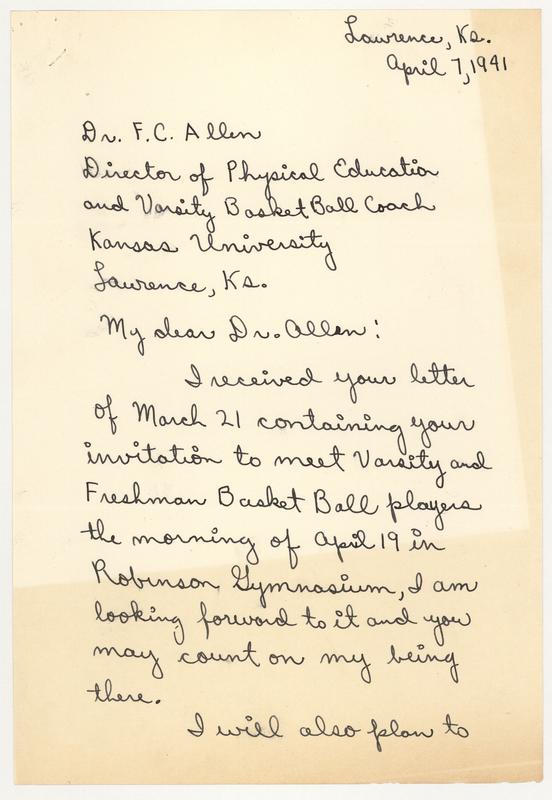 Lawrence, Ks.
April 7, 1941
Dr. F.C. Allen
Director of Physical Education
and Varsity Basket Ball Coach
Kansas University
Lawrence, Ks.
My dear Dr. Allen:
I received your letter
of March 21 containing your
invitation to meet Varsity and
Freshman Basket Ball players
the morning of April 19 in
Robinson Gymnasium, I am
looking forward to it and you
may count on my being
there.
I will also plan to